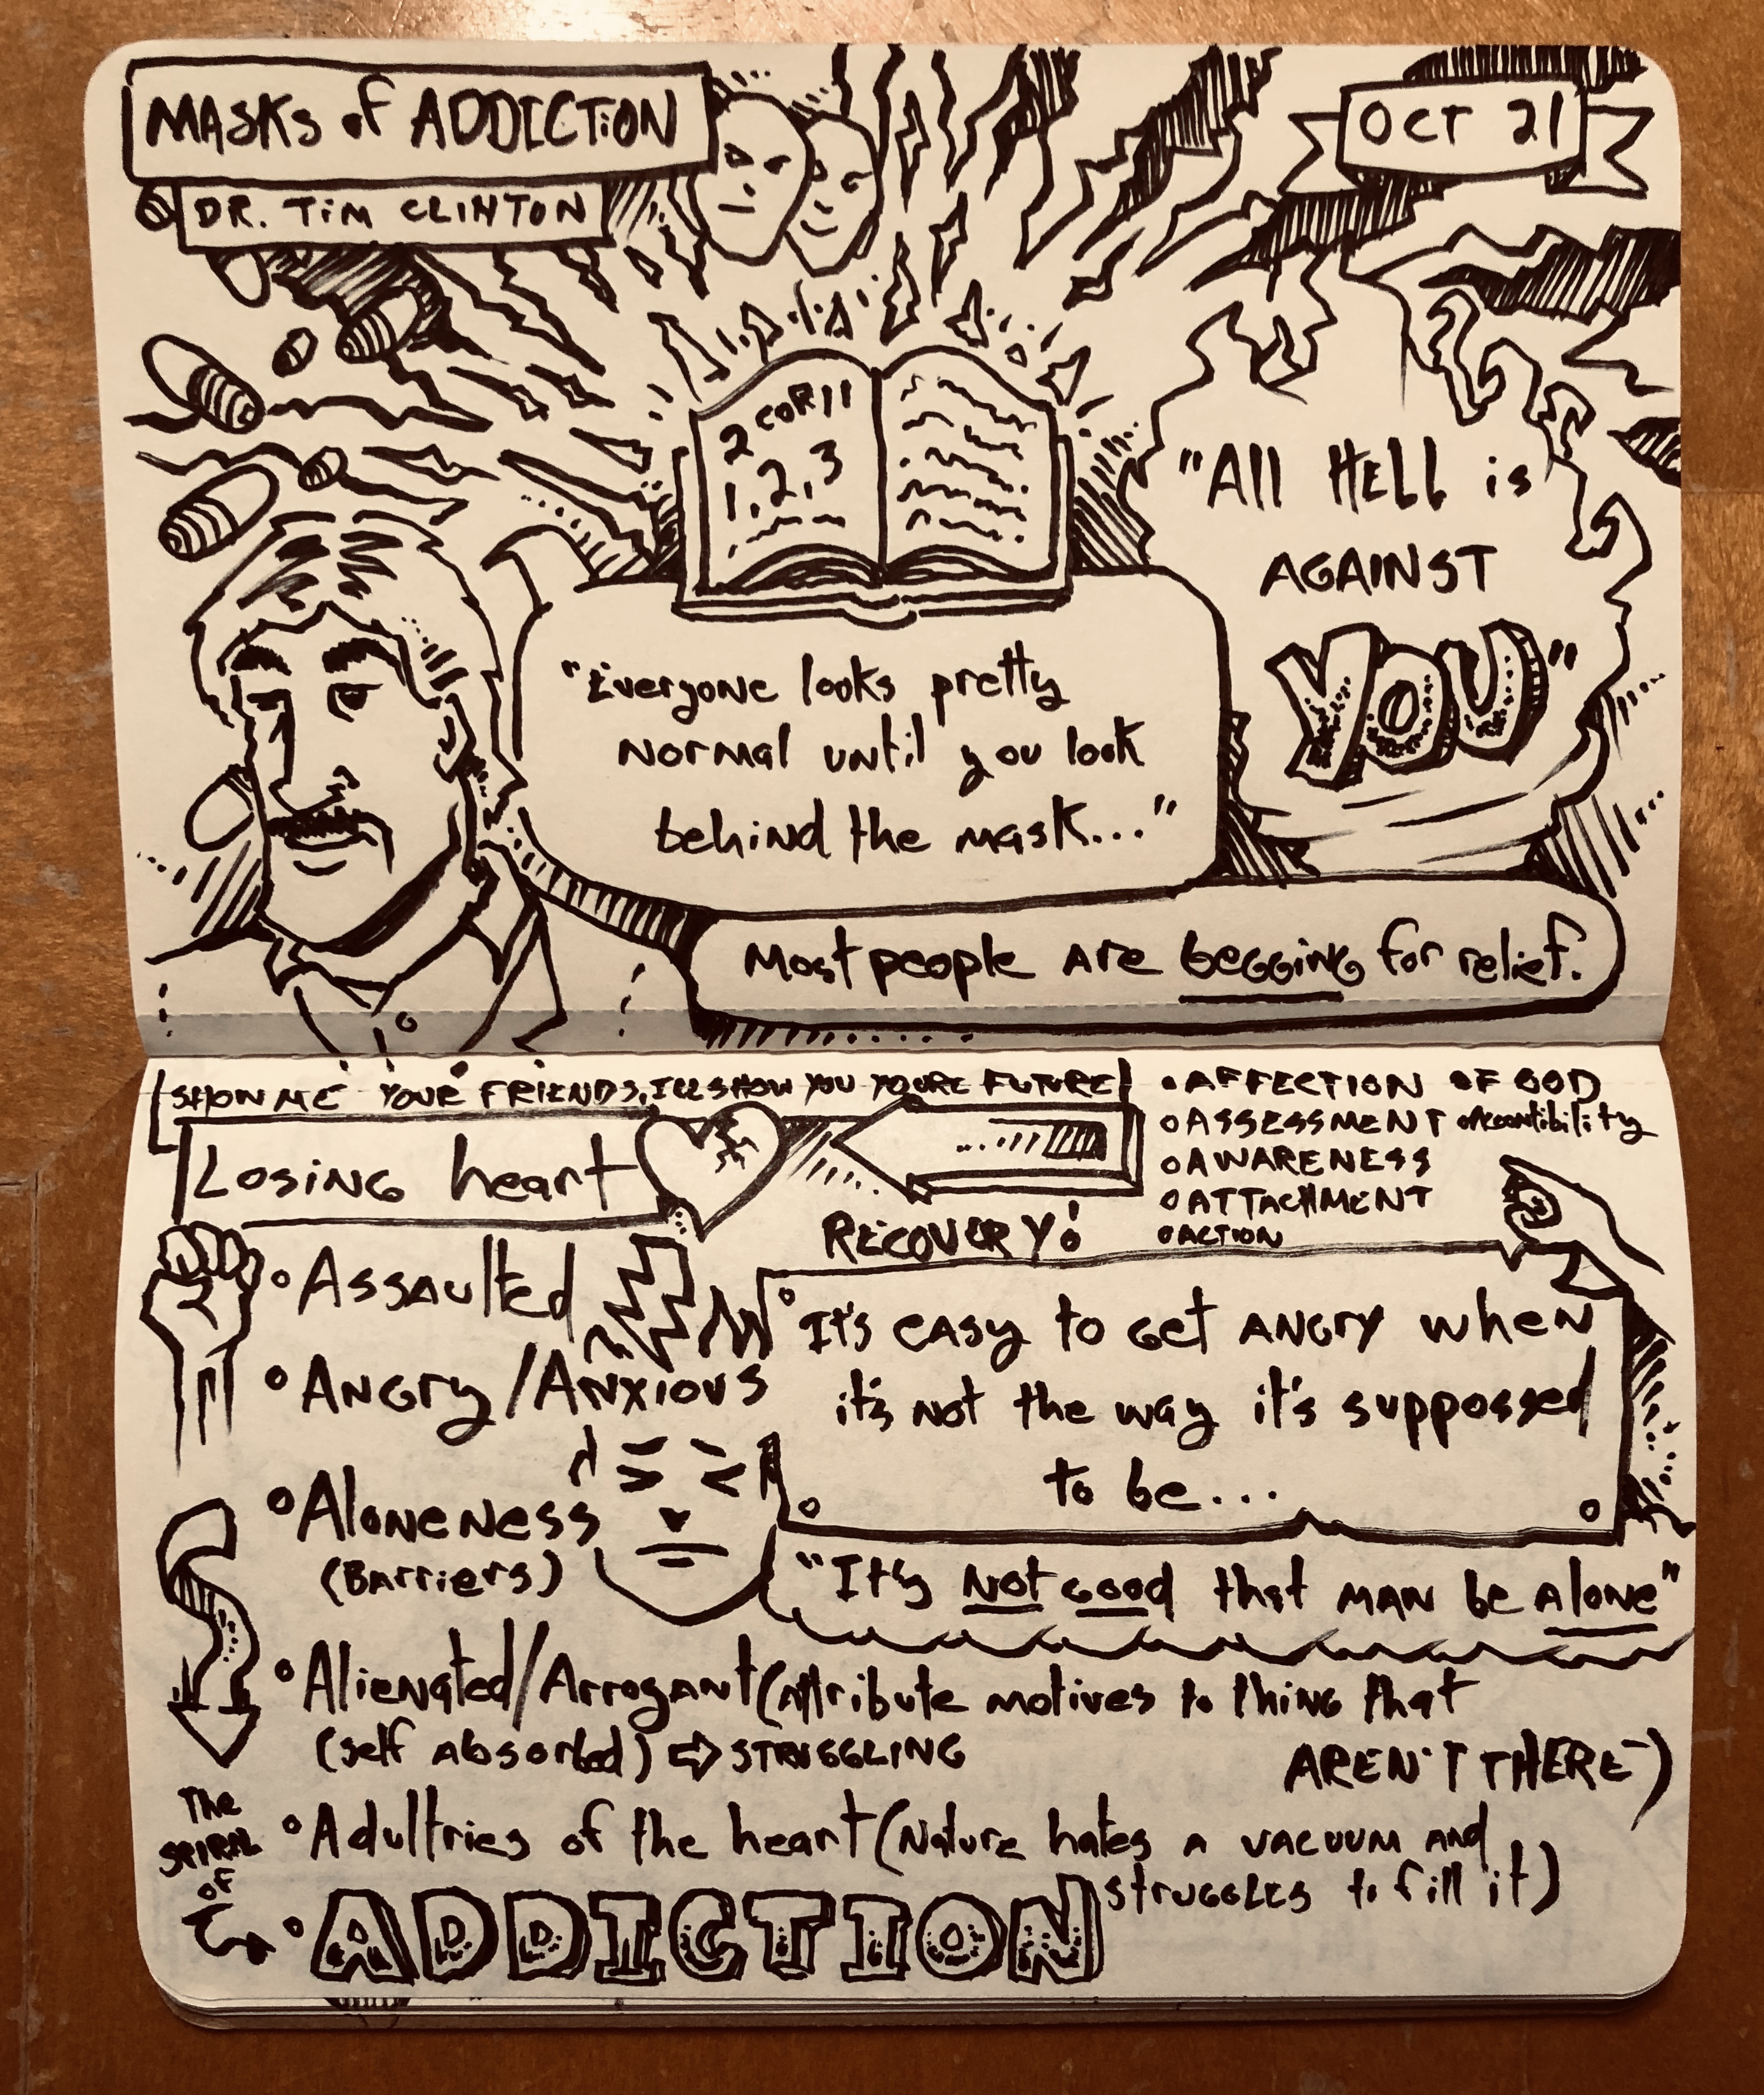 MASKs of ADDICTION
DR. TIM CLINTON
OCT 21
2 COR 11
1,2,3
"All HELL is
AGAINST
YOU"
"Everyone looks pretty
normal until you look
behind the mask..."
Most people are begging for relief.
SHOW ME YOUR FRIENDS, I'LL SHOW YOU YOURE FUTURE!
Losing heart
RECOVERY!
• AFFECTION OF GOD
• ASSESSMENT
• AWARENESS
• ATTACHMENT
• ACTION
• Assaulted
• Angry/Anxious
• Aloneness
(Barriers)
It's easy to get angry when
it's not the way it's suppossed
to be...
"It's not good that man be alone"
• Alienated/Arrogant (Attribute motives to thing that
AREN'T THERE)
(self absorbed) ⇨ STRUGGLING
• Adultries of the heart (Nature hates a vacuum and
struggles to fill it)
The
SPIRAL
of
• ADDICTION